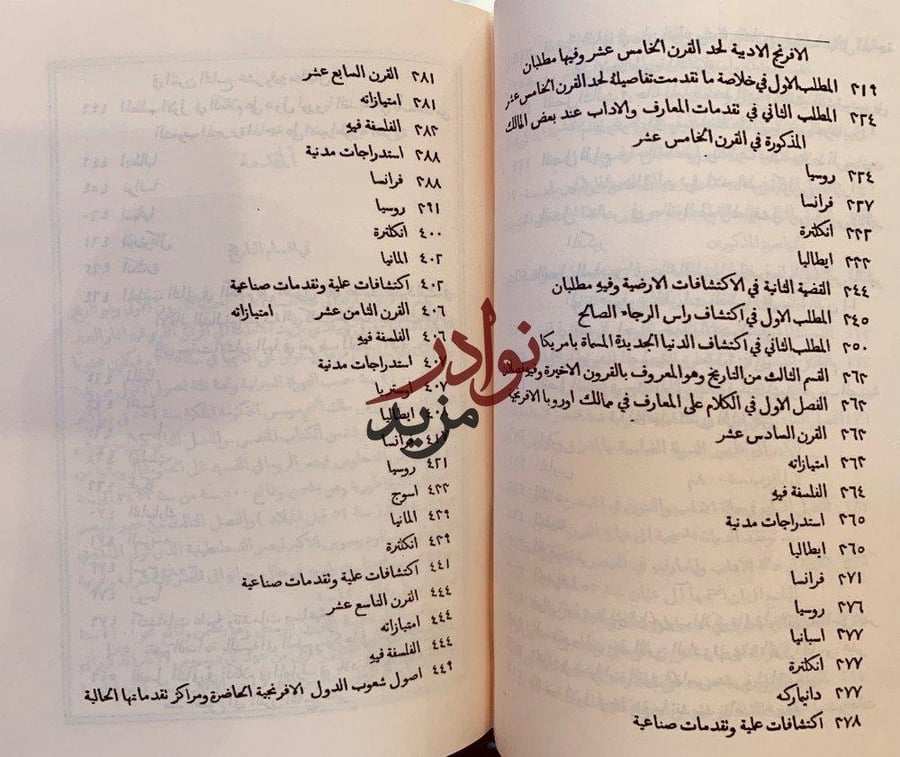 الافرنج الادبية لحد القرن الخامس عشر وفيها مطلبان
٢١٩ المطلب الاول في خلاصة ما تقدمت تفاصيلهُ لحد القرن الخامس عشر
٢٣٤ المطلب الثاني في تقدمات المعارف والاداب عند بعض المالك
المذكورة في القرن الخامس عشر
٢٣٤ روسيا
٢٣٧ فرانسا
انكلترة
ايطاليا
٢٤٤ القضية الثانية في الاكتشافات الارضية وفيهِ مطلبان
٢٤٥ المطلب الاول في اكتشاف راس الرجاء الصالح
٢٥٠ المطلب الثاني في اكتشاف الدنيا الجديدة المسماة بامريكا
٢٦٢ القسم الثالث من التاريخ وهو المعروف بالقرون الاخيرة وفيهِ
٢٦٢ الفصل الاول في الكلام على المعارف في ممالك اوروبا الافرنجية
٢٦٢ القرن السادس عشر
٢٦٢ امتيازاته
٢٦٤ الفلسفة فيهِ
٢٦٥ استدراجات مدنية
٢٦٥ ايطاليا
٢٧١ فرانسا
٢٧٦ روسيا
٢٧٧ اسبانيا
٢٧٧ انكلترة
٢٧٧ دانياركه
٢٧٨ اكتشافات علية وتقدمات صناعية
٢٨١ القرن السابع عشر
٢٨١ امتيازاته
٢٨٢ الفلسفة فيهِ
٢٨٨ استدراجات مدنية
٢٨٨ فرانسا
٢٩١ روسيا
٤٠٠ انكلترة
٤٠٢ المانيا
٤٠٢ اكتشافات علية وتقدمات صناعية
٤٠٦ القرن الثامن عشر امتيازاته
٤٠٦ الفلسفة فيهِ
٤٠٧ استدراجات مدنية
٤٠٧ اوستريا
ايطاليا
فرانسا
٤٢١ روسيا
٤٢٢ اسوج
٤٢٩ المانيا
٤٢٩ انكلترة
٤٤١ اكتشافات علية وتقدمات صناعية
٤٤٤ القرن التاسع عشر
٤٤٤ امتيازاته
٤٤٤ الفلسفة فيهِ
٤٤٩ اصول شعوب الدول الافرنجية الحاضرة ومراكز تقدماتها الحالية
نوادر
مزيد